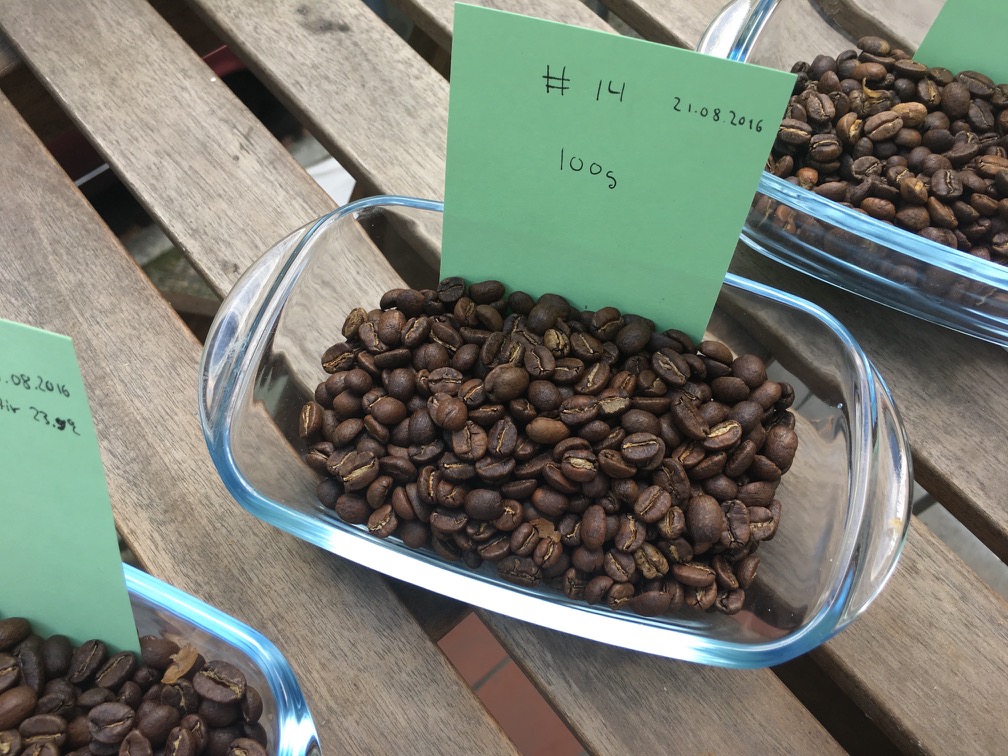 # 14
21.08.2016
100g
.08.2016
23.